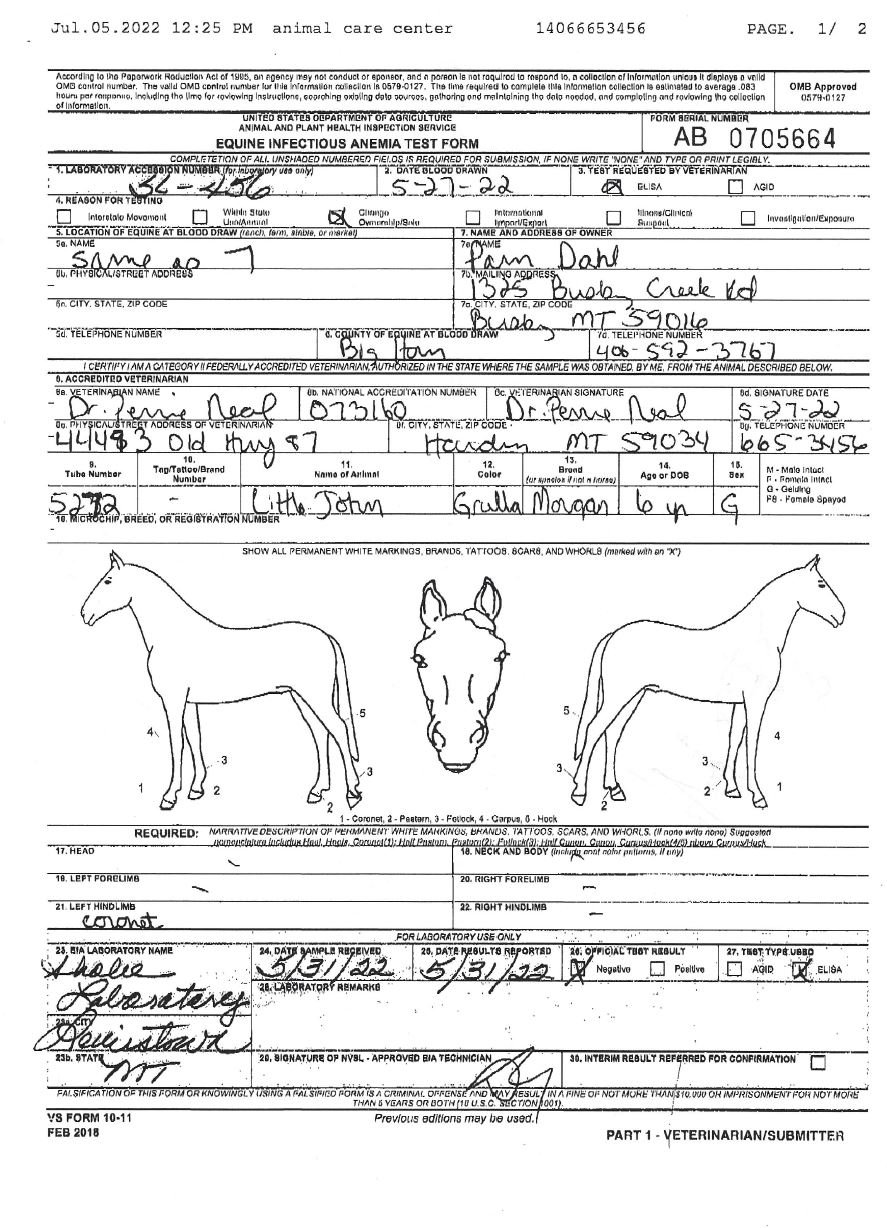 Jul.05.2022 12:25 PM animal care center 14066653456 PAGE. 1/ 2
According to the Paperwork Reduction Act of 1995, an agency may not conduct or sponsor, and a person is not required to respond to, a collection of information unless it displays a valid
OMB control number. The valid OMB control number for this information collection is 0579-0127. The time required to complete this information collection is estimated to average .083
hours per response, including the time for reviewing instructions, searching existing data sources, gathering and maintaining the data needed, and completing and reviewing the collection
of information.
OMB Approved
0579-0127
UNITED STATES DEPARTMENT OF AGRICULTURE
ANIMAL AND PLANT HEALTH INSPECTION SERVICE
EQUINE INFECTIOUS ANEMIA TEST FORM
FORM SERIAL NUMBER
AB 0705664
COMPLETETION OF ALL UNSHADED NUMBERED FIELDS IS REQUIRED FOR SUBMISSION, IF NONE WRITE "NONE" AND TYPE OR PRINT LEGIBLY.
1. LABORATORY ACCESSION NUMBER (for laboratory use only)
2. DATE BLOOD DRAWN
5-27-22
3. TEST REQUESTED BY VETERINARIAN
ELISA AGID
4. REASON FOR TESTING
Interstate Movement
Within State Use/Annual
Change Ownership/Sale
International Import/Export
Illness/Clinical Suspect
Investigation/Exposure
5. LOCATION OF EQUINE AT BLOOD DRAW (ranch, farm, stable, or market)
7. NAME AND ADDRESS OF OWNER
5a. NAME
Same as 7
7a. NAME
Pam Dahl
5b. PHYSICAL/STREET ADDRESS
7b. MAILING ADDRESS
1325 Busby Creek Rd
5c. CITY, STATE, ZIP CODE
7c. CITY, STATE, ZIP CODE
Busby MT 59016
5d. TELEPHONE NUMBER
6. COUNTY OF EQUINE AT BLOOD DRAW
Big Horn
7d. TELEPHONE NUMBER
406-592-3767
I CERTIFY I AM A CATEGORY II FEDERALLY ACCREDITED VETERINARIAN, AUTHORIZED IN THE STATE WHERE THE SAMPLE WAS OBTAINED, BY ME, FROM THE ANIMAL DESCRIBED BELOW.
8. ACCREDITED VETERINARIAN
8a. VETERINARIAN NAME
Dr. Neal
8b. NATIONAL ACCREDITATION NUMBER
073160
8c. VETERINARIAN SIGNATURE
Dr. Neal
8d. SIGNATURE DATE
5-27-22
8e. PHYSICAL/STREET ADDRESS OF VETERINARIAN
Old Hwy 87
8f. CITY, STATE, ZIP CODE
Hardin MT 59034
8g. TELEPHONE NUMBER
665-3456
9.
Tube Number
10.
Tag/Tattoo/Brand
Number
11.
Name of Animal
12.
Color
13.
Breed
(or species if not a horse)
14.
Age or DOB
15.
Sex
M - Male Intact
F - Female Intact
G - Gelding
FS - Female Spayed
- Little John Grulla Morgan 6 yr G
16. MICROCHIP, BREED, OR REGISTRATION NUMBER
SHOW ALL PERMANENT WHITE MARKINGS, BRANDS, TATTOOS, SCARS, AND WHORLS (marked with an "X")
5 5
4 4
3 3
3 3
1 2 2 1
2 2
1 - Coronet, 2 - Pastern, 3 - Fetlock, 4 - Carpus, 5 - Hock
REQUIRED: NARRATIVE DESCRIPTION OF PERMANENT WHITE MARKINGS, BRANDS, TATTOOS, SCARS, AND WHORLS. (if none write none) Suggested
nomenclature includes Heel, Heels, Coronet(1); Half Pastern, Pastern(2); Fetlock(3); Half Canon, Canon, Carpus/Hock(4/5) above Carpus/Hock
17. HEAD
18. NECK AND BODY (include coat color patterns, if any)
19. LEFT FORELIMB
20. RIGHT FORELIMB
21. LEFT HINDLIMB
coronet
22. RIGHT HINDLIMB
FOR LABORATORY USE ONLY
23. EIA LABORATORY NAME
Laboratory
24. DATE SAMPLE RECEIVED
5/31/22
25. DATE RESULTS REPORTED
5/31/22
26. OFFICIAL TEST RESULT
Negative Positive
27. TEST TYPE USED
AGID ELISA
28. LABORATORY REMARKS
23a. CITY
Lewistown
23b. STATE
MT
29. SIGNATURE OF NVSL - APPROVED EIA TECHNICIAN
30. INTERIM RESULT REFERRED FOR CONFIRMATION
FALSIFICATION OF THIS FORM OR KNOWINGLY USING A FALSIFIED FORM IS A CRIMINAL OFFENSE AND MAY RESULT IN A FINE OF NOT MORE THAN $10,000 OR IMPRISONMENT FOR NOT MORE
THAN 5 YEARS OR BOTH (18 U.S.C. SECTION 1001).
VS FORM 10-11
FEB 2018
Previous editions may be used.
PART 1 - VETERINARIAN/SUBMITTER